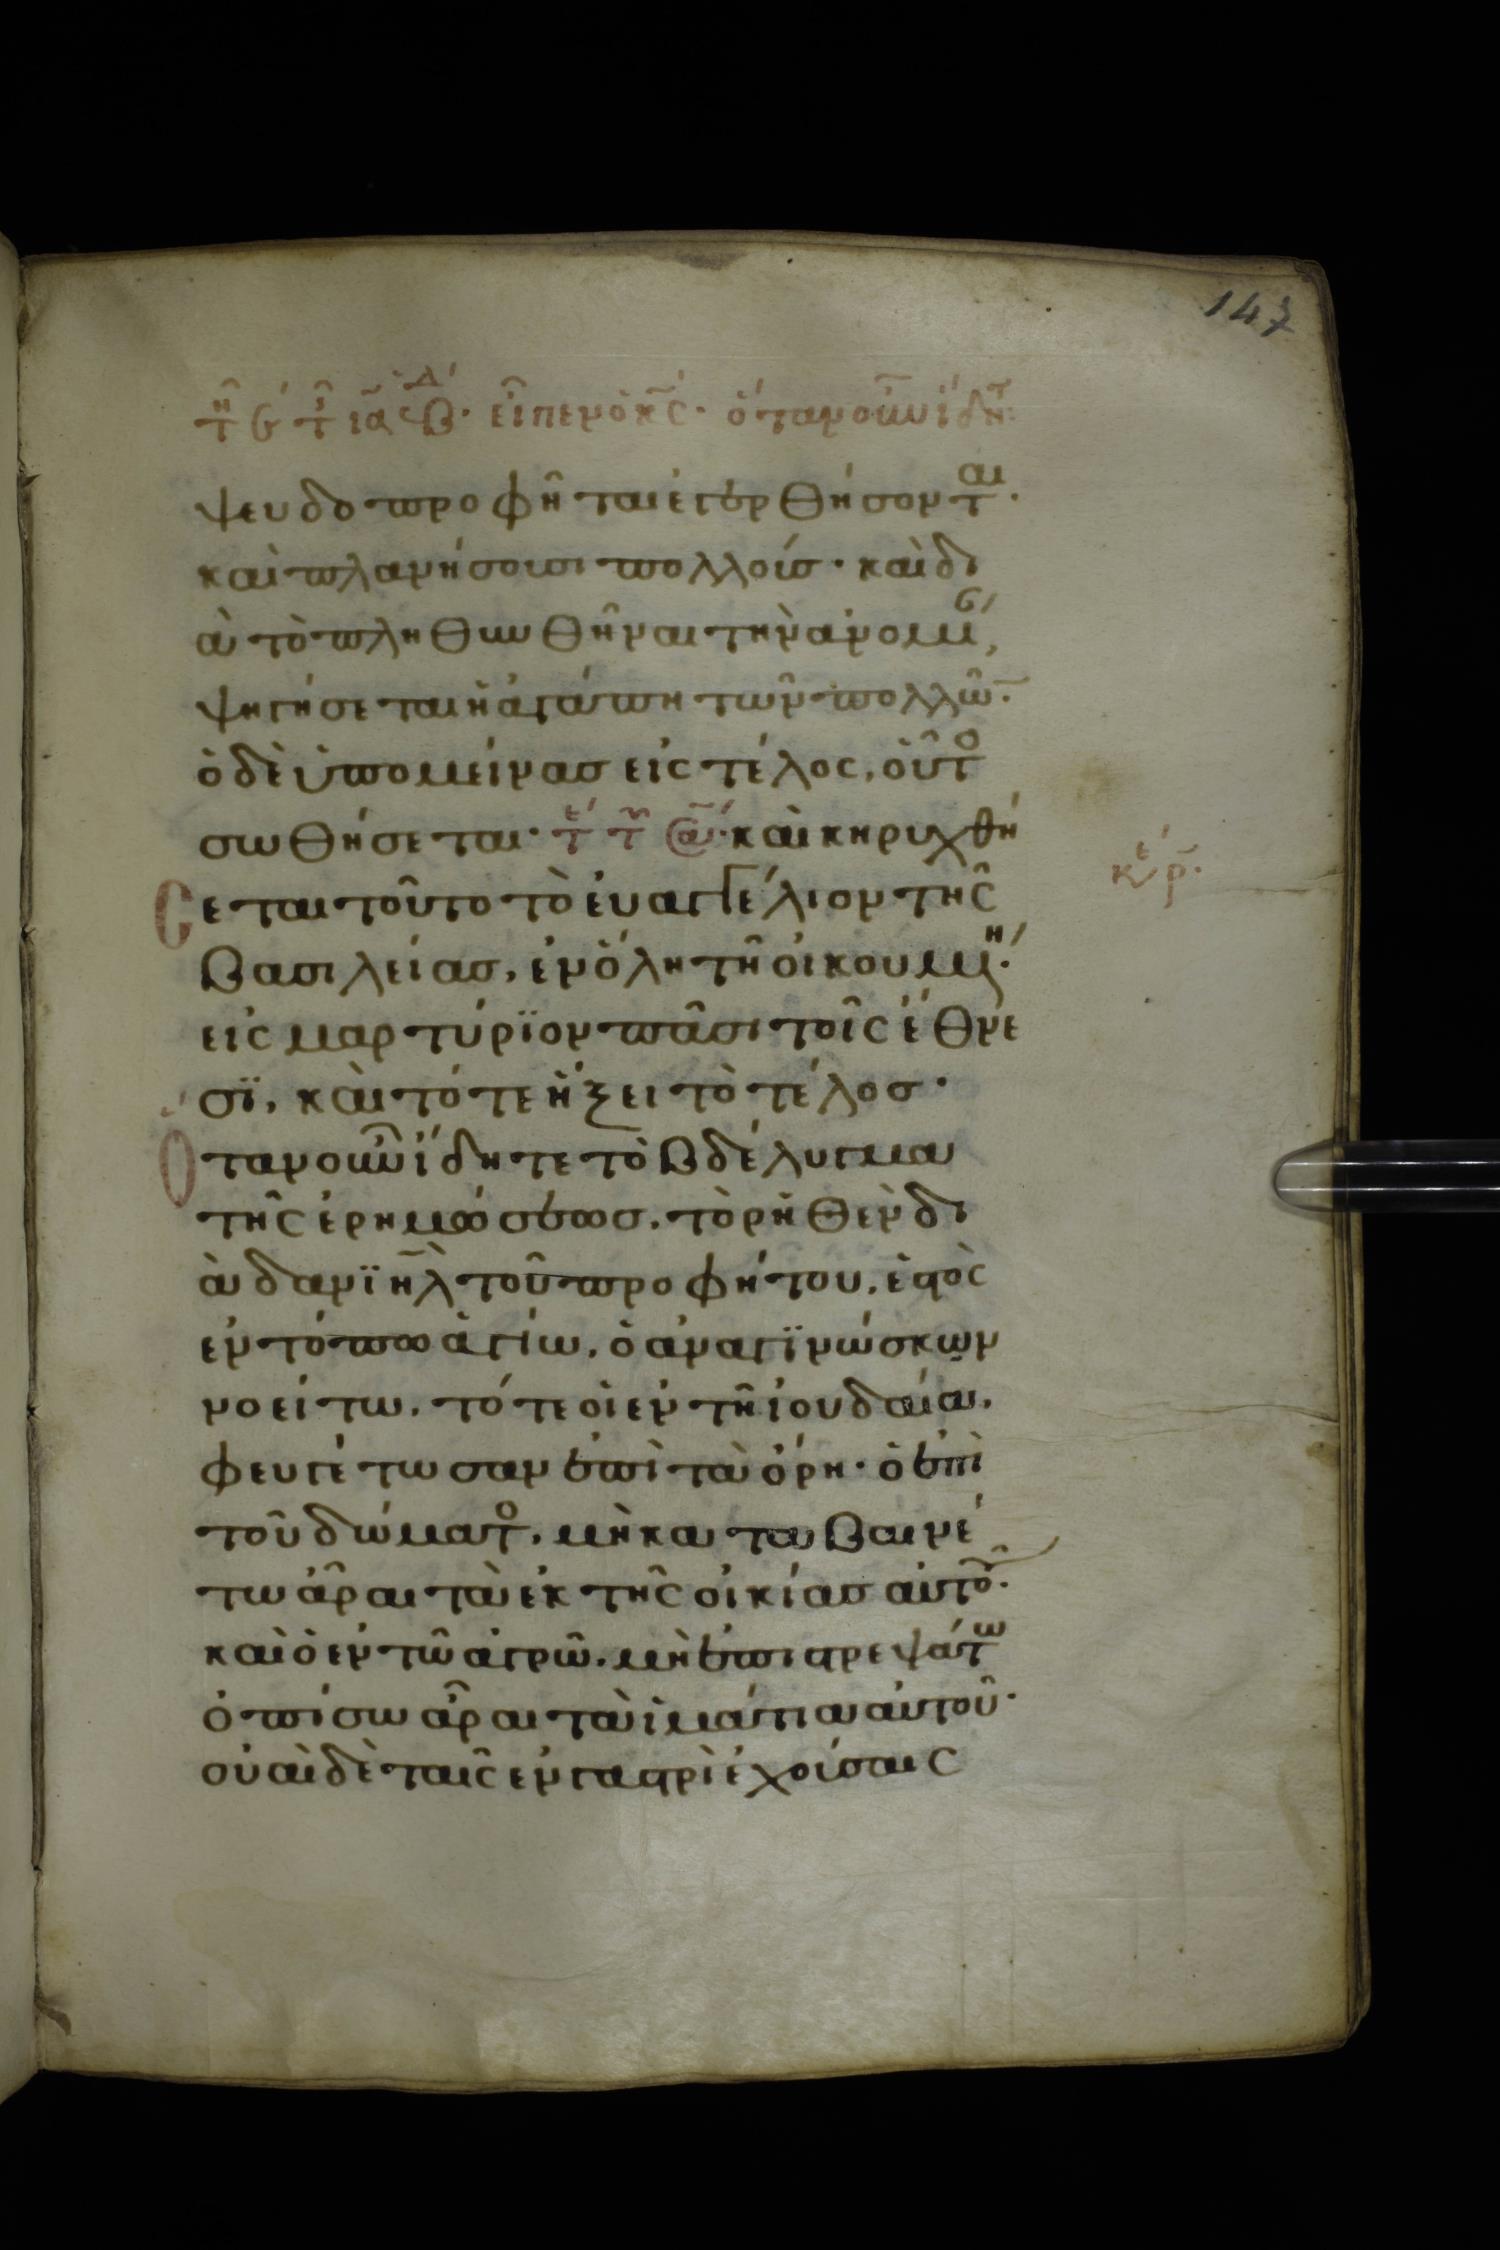 147
τῇ ϛ´ τῆ ια εἶπεν ὁ κς· ὅταν οὖν ἴδητ:
ψευδοπροφῆται ἐγερθήσονται·
καὶ πλανήσουσι πολλούς· καὶ δι
ὰ τὸ πληθυνθῆναι τὴν ἀνομί,
ψυγήσεται ἡ ἀγάπη τῶν πολλῶ·
ὁ δὲ ὑπομείνας εἰς τέλος, οὗτο
σωθήσεται· τέ τῆ καὶ κηρυχθή
σεται τοῦτο τὸ ἐυαγγέλιον τῆς
βασιλείας, ἐν ὅλη τῆ οἰκουμένη·
εἰς μαρτύρϊον πᾶσι τοῖς ἔθνε
σϊ, καὶ τότε ἥξει τὸ τέλος·
Ὅταν οὖν ἴδητε τὸ βδέλυγμα
τῆς ἐρημώσεως, τὸ ρηθὲν δι
ὰ δανϊὴλ τοῦ προφήτου, ἑστὸς
ἐν τόπω ἁγίω, ὁ ἀναγϊνώσκων
νοείτω, τότε οἱ ἐν τῆ ἰουδαία,
φευγέτωσαν ἐπὶ τὰ ὄρη· ὁ ἐπὶ
τοῦ δώματο, μὴ καταβαινέ
τω ἆραι τὰ ἐκ τῆς οἰκίας αὐτοῦ·
καὶ ὁ ἐν τῶ ἀγρῶ, μὴ ἐπιστρεψάτω
ὀπίσω ἆραι τὰ ἱμάτια αὐτοῦ·
οὐαὶ δὲ ταῖς ἐν γαστρὶ ἐχούσαις